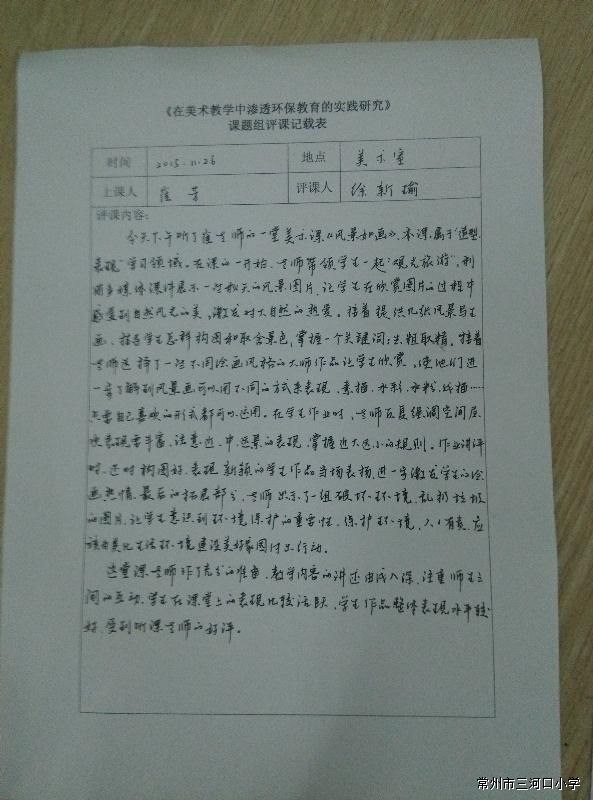 《在美术教学中渗透环保教育的实践研究》
课题组评课记载表
时间 2015.11.26 地点 美术室
上课人 崔芳 评课人 徐新瑜
评课内容:
今天下午听了崔老师的一堂美术课《风景如画》,本课属于"造型·
表现"学习领域。在课的一开始,老师带领学生一起"观光旅游",利
用多媒体课件展示一些秋天的风景图片,让学生在欣赏图片的过程中
感受到自然风光的美,激发对大自然的热爱。接着提供几张风景与主
画,指导学生怎样构图和取舍景色,掌握一个关键词:去粗取精。接着
老师选择了一些不同绘画风格的大师作品让学生欣赏,使他们进
一步了解到风景画可以用不同的方式来表现,素描、水彩、水粉、线描……
只要自己喜欢的形式都可以运用。在学生作业时,老师反复强调空间层
次表现要丰富,注意近、中、远景的表现,掌握近大远小的规则。作业讲评
时,还对构图好、表现新颖的学生作品当场表扬,进一步激发学生的绘
画热情。最后的拓展部分,老师出示了一组破坏环境、乱扔垃圾
的图片,让学生意识到环境保护的重要性,保护环境,人人有责,应
该为美化生活环境建设美好家园付出行动。
这堂课老师作了充分的准备,教学内容的讲述由浅入深,注重师生之
间的互动,学生在课堂上的表现比较活跃,学生作品整体表现水平较
好,受到听课老师的好评。
常州市三河口小学